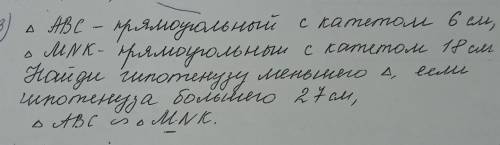 3) △ ABC - прямоугольный с катетом 6 см,
△ MNK - прямоугольный с катетом 18 см
Найди гипотенузу меньшего △, если
гипотенуза большего 27 см,
△ ABC ∽ △ MNK.